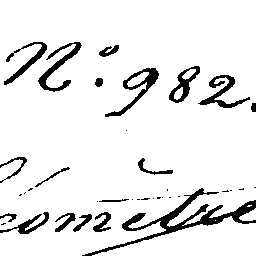 N.º 982.
Géomètre